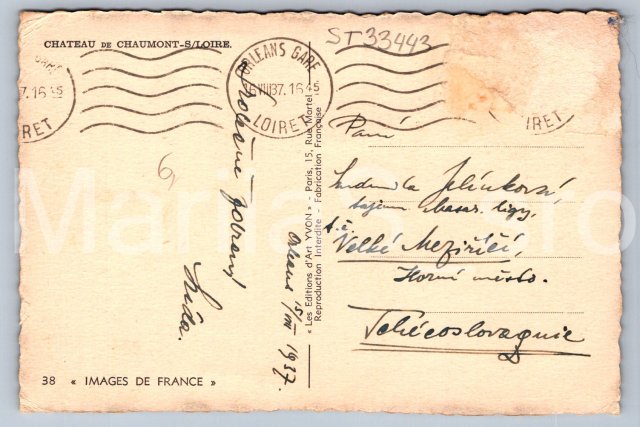 CHATEAU DE CHAUMONT-S/LOIRE.
ST 33443
ORLEANS GARE
VIII 37. 16 45
LOIRET
7. 16 45
IRET
IRET
Srdečné pozdravy
Lída.
Orleans 15/VIII 1937.
6
« Les Editions d'Art YVON » - Paris, 15, Rue Martel
Reproduction Interdite - Fabrication Française
Paní
Ludmila Jelínková,
tajem. Masar. ligy,
t. č.
Velké Meziříčí,
Horní město.
Tchécoslovaquie
38 « IMAGES DE FRANCE »